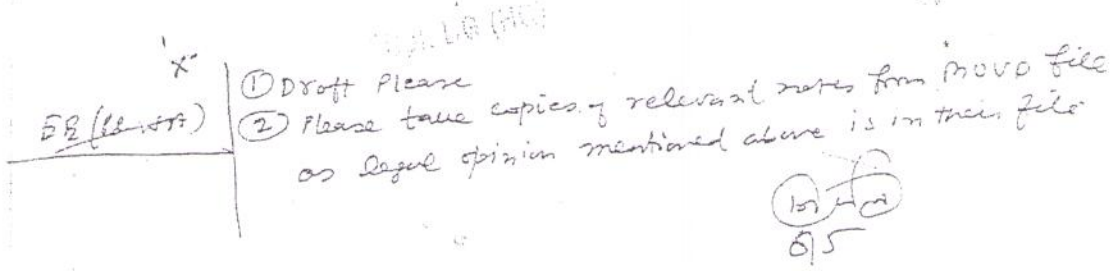 'X'
① Draft Please
② Please take copies of relevant notes from MOUD file
as legal opinion mentioned above is in their file
6/5